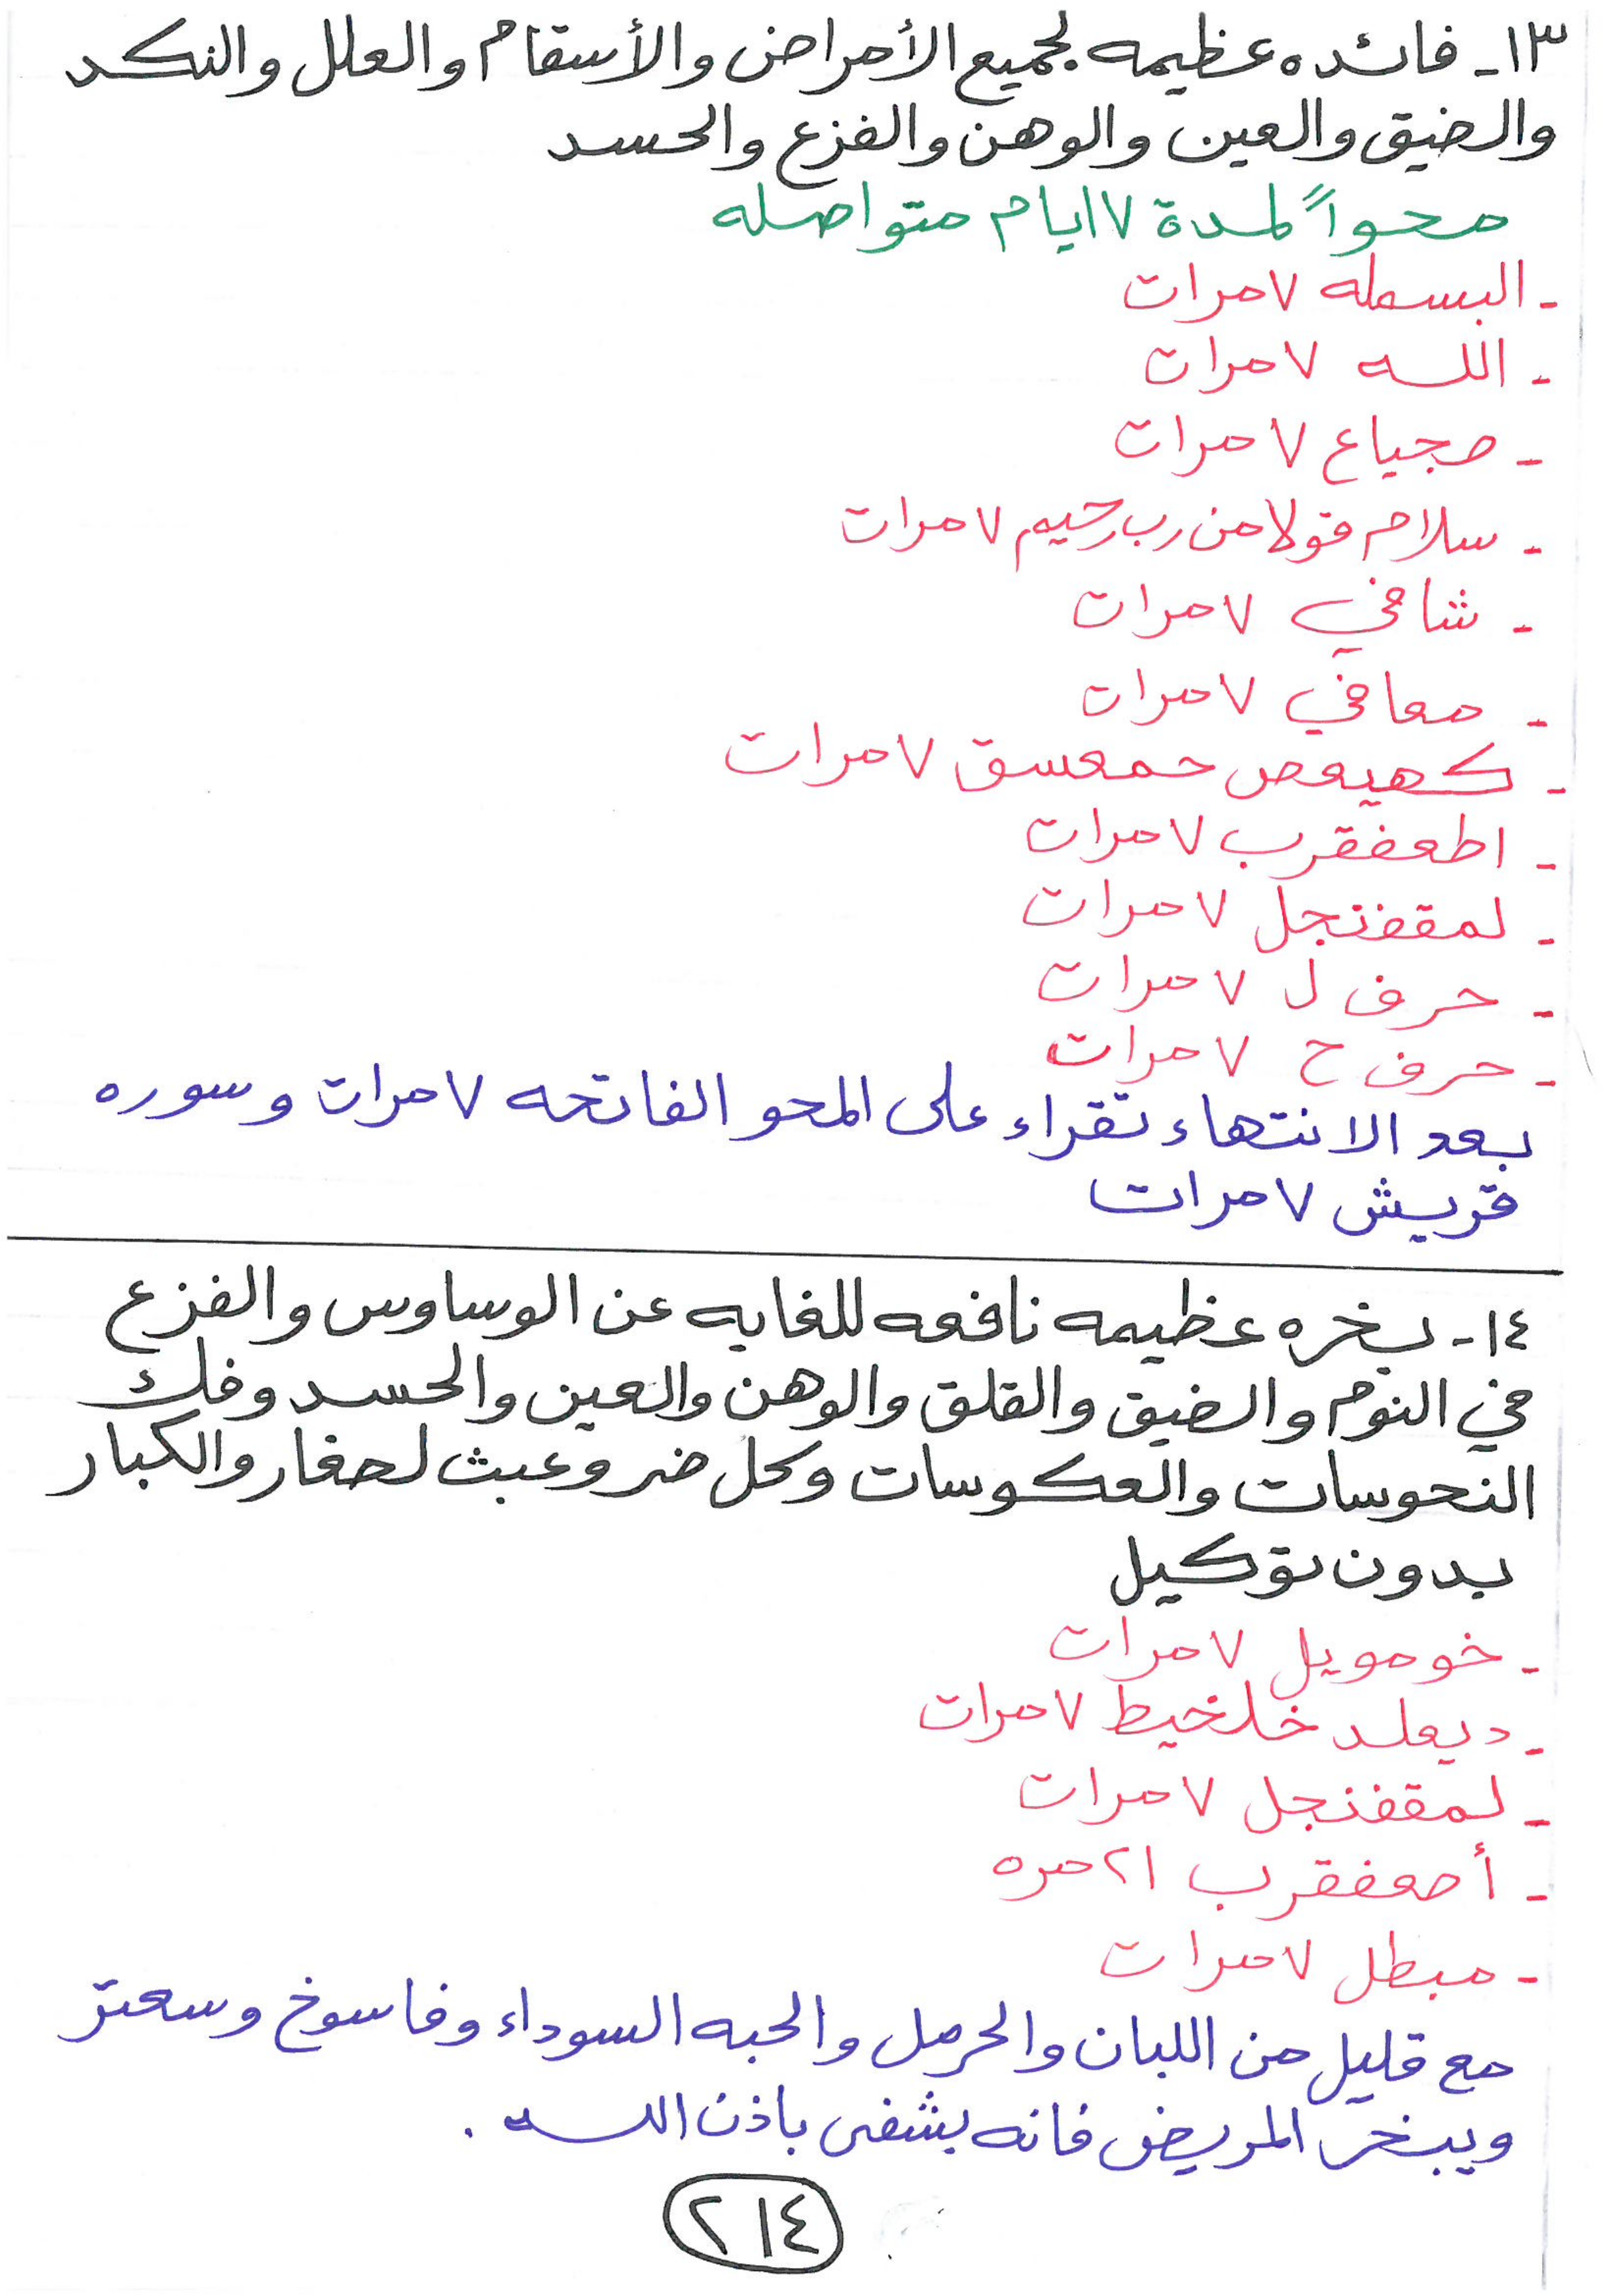 ١٣- فائده عظيمه لجميع الأمراض والأسقام والعلل والنكد
والضيق والعين والوهن والفزع والحسد
محواً لمدة ٧ ايام متواصله
- البسمله ٧ مرات
- الله ٧ مرات
- مجياع ٧ مرات
- سلام قولا من رب رحيم ٧ مرات
- شافي ٧ مرات
- معافي ٧ مرات
- كهيعص حمعسق ٧ مرات
- اطعفقرب ٧ مرات
- لمقفنجل ٧ مرات
- حرف ل ٧ مرات
- حرف ح ٧ مرات
بعد الانتهاء تقراء على المحو الفاتحه ٧ مرات وسوره
قريش ٧ مرات
١٤- بخره عظيمه نافعه للغايه عن الوساوس والفزع
في النوم والضيق والقلق والوهن والعين والحسد وفك
النحوسات والعكوسات وكل ضر وعبث لصغار والكبار
بدون توكيل
- خومويل ٧ مرات
- ديعلد خلخيط ٧ مرات
- لمقفنجل ٧ مرات
- أمعفقرب ٢١ مره
- مبطل ٧ مرات
مع قليل من اللبان والحرمل والحبه السوداء وفاسوخ وسعتر
ويبخر المريض فانه يشفى باذن الله .
٢١٤